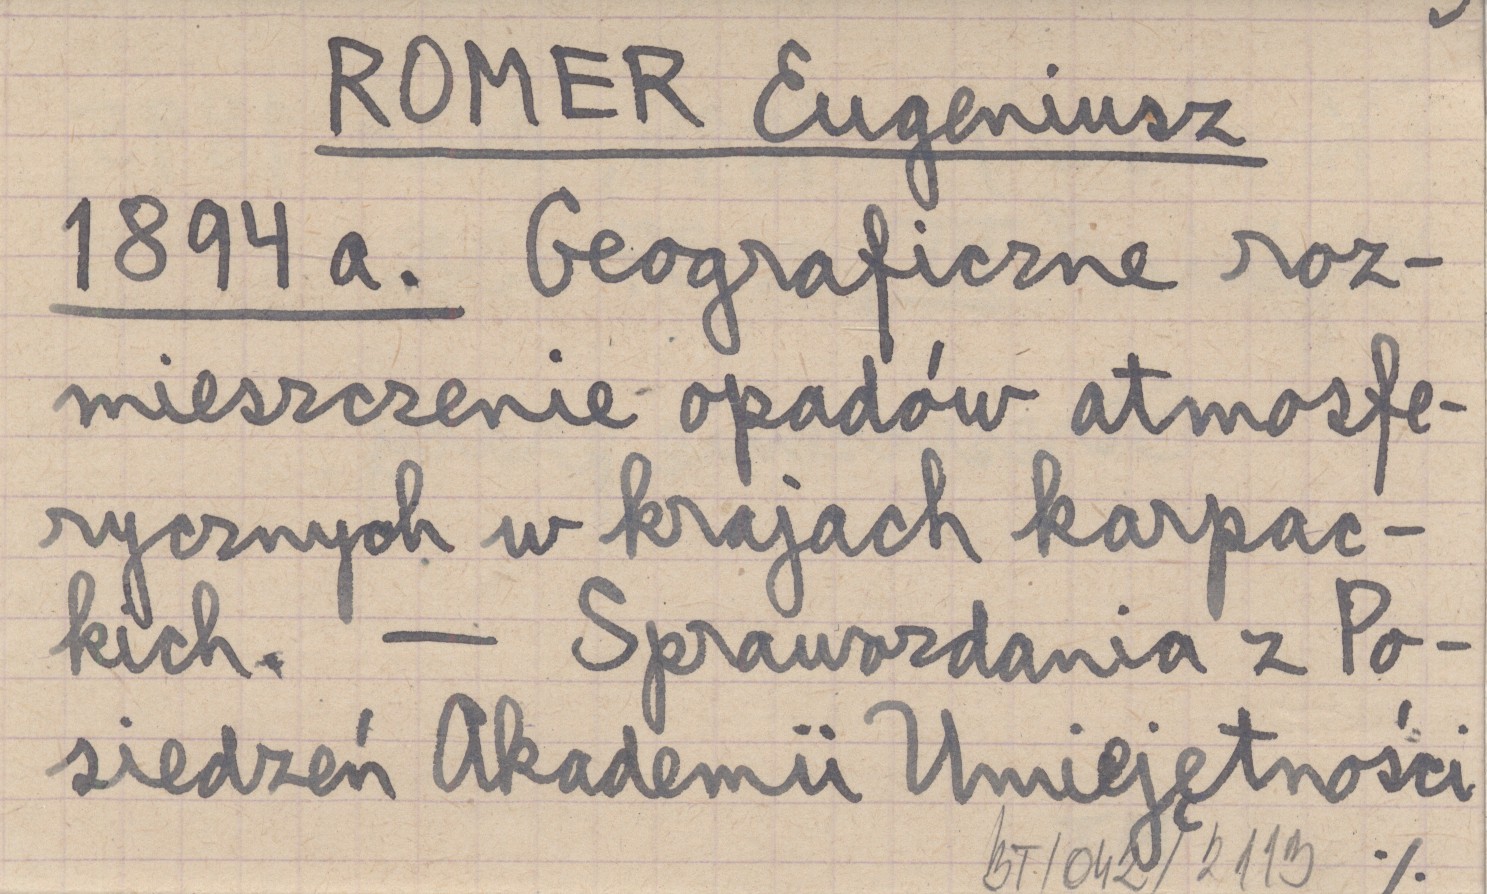 ROMER Eugeniusz
1894 a. Geograficzne roz-
mieszczenie opadów atmosfe-
rycznych w krajach karpac-
kich. — Sprawozdania z Po-
siedzeń Akademii Umiejętności
BT/042/2113 ./.